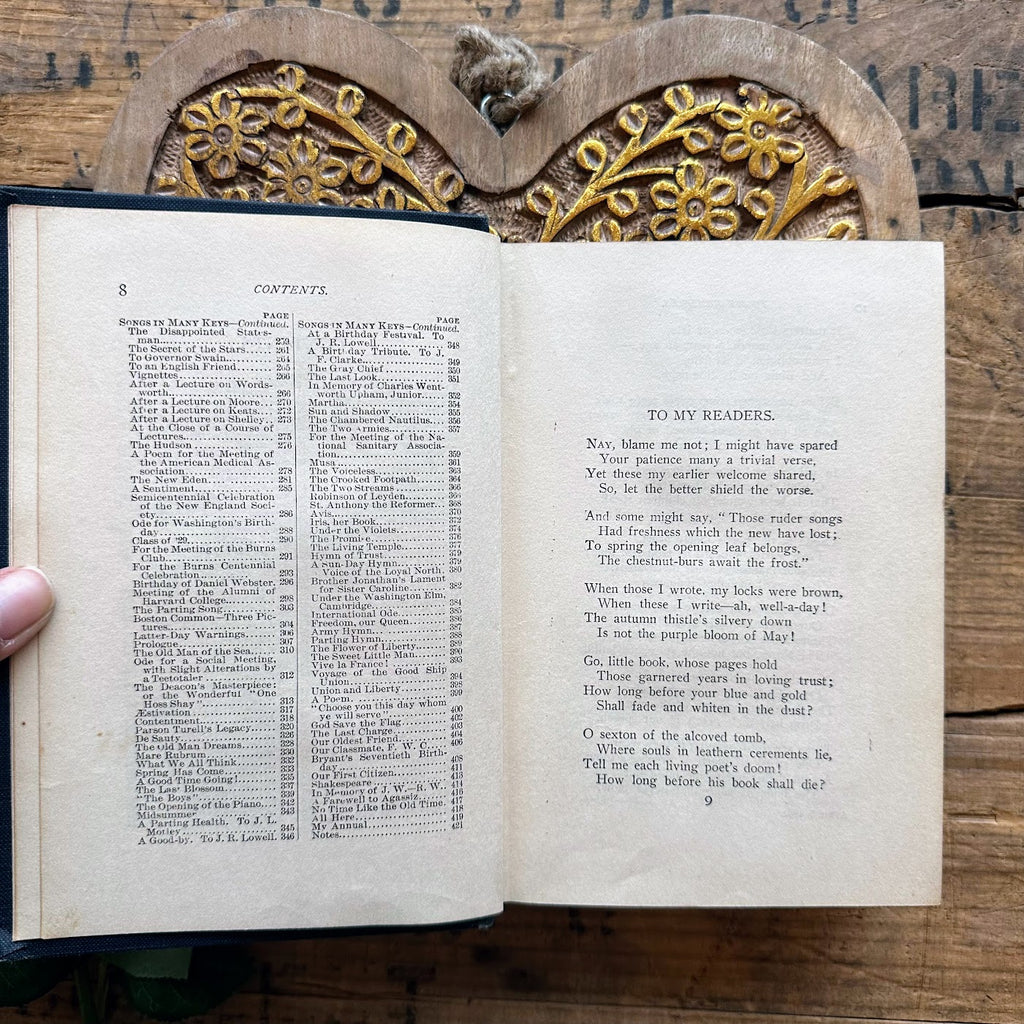 ARE
8
CONTENTS.
PAGE
SONGS IN MANY KEYS—Continued.
The Disappointed States-
man........ 259
The Secret of the Stars...... 261
To Governor Swain........ 264
To an English Friend...... 265
Vignettes........ 266
After a Lecture on Words-
worth........ 266
After a Lecture on Moore... 270
After a Lecture on Keats... 272
After a Lecture on Shelley.. 273
At the Close of a Course of
Lectures........ 275
The Hudson........ 276
A Poem for the Meeting of
the American Medical As-
sociation........ 278
The New Eden........ 281
A Sentiment........ 285
Semicentennial Celebration
of the New England Soci-
ety........ 286
Ode for Washington's Birth-
day........ 288
Class of '29........ 290
For the Meeting of the Burns
Club........ 291
For the Burns Centennial
Celebration........ 293
Birthday of Daniel Webster. 296
Meeting of the Alumni of
Harvard College........ 298
The Parting Song........ 303
Boston Common—Three Pic-
tures........ 304
Latter-Day Warnings...... 306
Prologue........ 307
The Old Man of the Sea..... 310
Ode for a Social Meeting,
with Slight Alterations by
a Teetotaler........ 312
The Deacon's Masterpiece:
or the Wonderful "One
Hoss Shay"........ 313
Æstivation........ 317
Contentment........ 318
Parson Turell's Legacy...... 320
De Sauty........ 326
The Old Man Dreams...... 328
Mare Rubrum........ 330
What We All Think........ 332
Spring Has Come........ 333
A Good Time Going!...... 335
The Last Blossom........ 337
"The Boys"........ 339
The Opening of the Piano.... 342
Midsummer........ 343
A Parting Health. To J. L.
Motley........ 345
A Good-by. To J. R. Lowell. 346
PAGE
SONGS IN MANY KEYS—Continued.
At a Birthday Festival. To
J. R. Lowell........ 348
A Birthday Tribute. To J.
F. Clarke........ 349
The Gray Chief........ 350
The Last Look........ 351
In Memory of Charles Went-
worth Upham, Junior...... 352
Martha........ 354
Sun and Shadow........ 355
The Chambered Nautilus.... 356
The Two Armies........ 357
For the Meeting of the Na-
tional Sanitary Associa-
tion........ 359
Musa........ 361
The Voiceless........ 363
The Crooked Footpath...... 364
The Two Streams........ 366
Robinson of Leyden........ 366
St. Anthony the Reformer... 368
Avis........ 370
Iris, her Book........ 372
Under the Violets........ 374
The Promise........ 376
The Living Temple........ 377
Hymn of Trust........ 379
A Sun-Day Hymn........ 379
Voice of the Loyal North. 380
Brother Jonathan's Lament
for Sister Caroline........ 382
Under the Washington Elm,
Cambridge........ 384
International Ode........ 385
Freedom, our Queen........ 386
Army Hymn........ 387
Parting Hymn........ 388
The Flower of Liberty...... 389
The Sweet Little Man...... 390
Vive la France!........ 393
Voyage of the Good Ship
Union........ 394
Union and Liberty........ 398
A Poem........ 399
"Choose you this day whom
ye will serve"........ 400
God Save the Flag........ 402
The Last Charge........ 402
Our Oldest Friend........ 404
Our Classmate, F. W. C.... 406
Bryant's Seventieth Birth-
day........ 408
Our First Citizen........ 411
Shakespeare........ 413
In Memory of J. W.—R. W.. 414
A Farewell to Agassiz...... 416
No Time Like the Old Time. 417
All Here........ 418
My Annual........ 419
Notes........ 421
TO MY READERS.
NAY, blame me not; I might have spared
Your patience many a trivial verse,
Yet these my earlier welcome shared,
So, let the better shield the worse.
And some might say, "Those ruder songs
Had freshness which the new have lost;
To spring the opening leaf belongs,
The chestnut-burs await the frost."
When those I wrote, my locks were brown,
When these I write—ah, well-a-day!
The autumn thistle's silvery down
Is not the purple bloom of May!
Go, little book, whose pages hold
Those garnered years in loving trust;
How long before your blue and gold
Shall fade and whiten in the dust?
O sexton of the alcoved tomb,
Where souls in leathern cerements lie,
Tell me each living poet's doom!
How long before his book shall die?
9